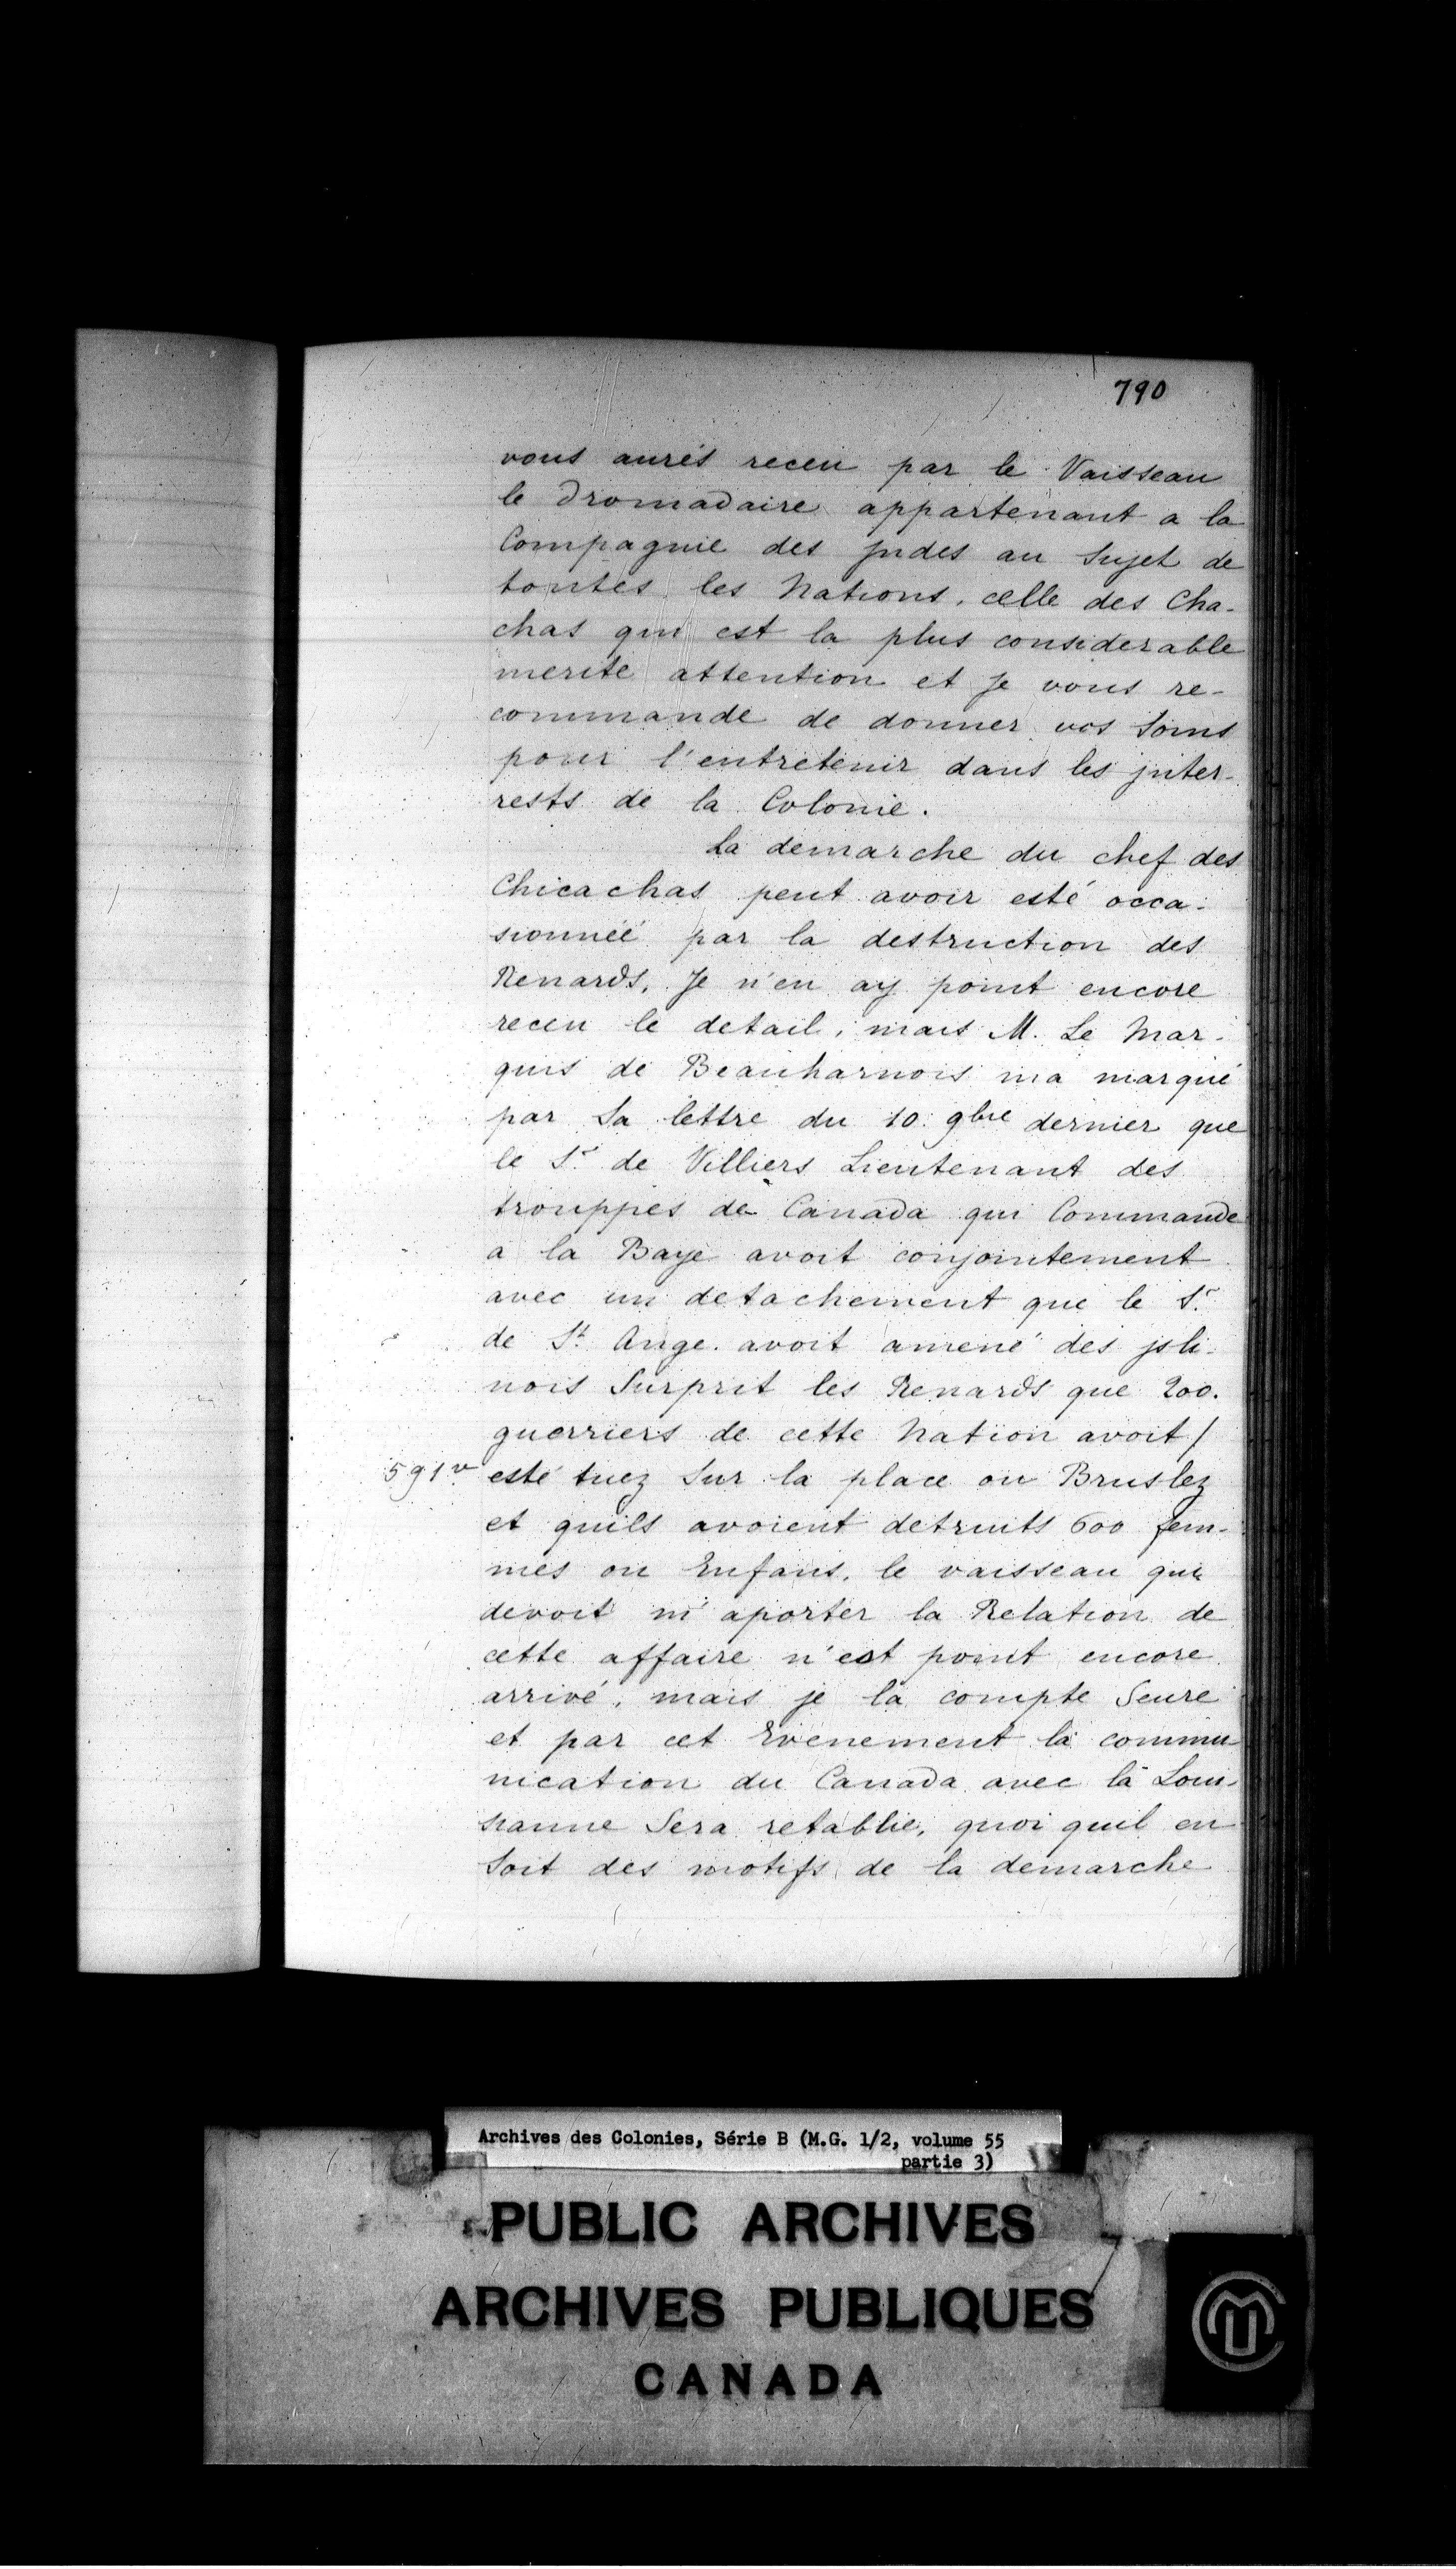 790
vous aurés receu par le Vaisseau
le Dromadaire appartenant a la
Compagnie des jndes au Sujet de
toutes les Nations, celle des Cha-
chas qui est la plus considerable
merite attention et Je vous re-
commande de donner vos Soins
pour l'entretenir dans les jnter-
rests de la Colonie.
La demarche du chef des
Chicachas peut avoir esté occa-
sionnéé par la destruction des
Renards, Je n'en ay point encore
receu le detail, mais M. Le Mar-
quis de Beauharnois ma marqué
par Sa lettre du 10. 9bre dernier que
le Sr. de Villiers Lieutenant des
trouppes de Canada qui Commande
a la Baye avoit conjointement
avec un detachement que le Sr.
de St. Ange avoit amené des jsli-
nois Surprit les Renards que 200.
guerriers de cette Nation avoit /
591v esté tuez Sur la place ou Bruslez
et quils avoient detruits 600 fem-
mes ou Enfans, le vaisseau qui
devoit m'aporter la Relation de
cette affaire n'est point encore
arrivé, mais je la compte Seure
et par cet Evenement la commu-
nication du Canada avec la Loui-
sianne Sera retablie, quoi quil en
Soit des motifs de la demarche
Archives des Colonies, Série B (M.G. 1/2, volume 55
partie 3)
PUBLIC ARCHIVES
ARCHIVES PUBLIQUES
CANADA